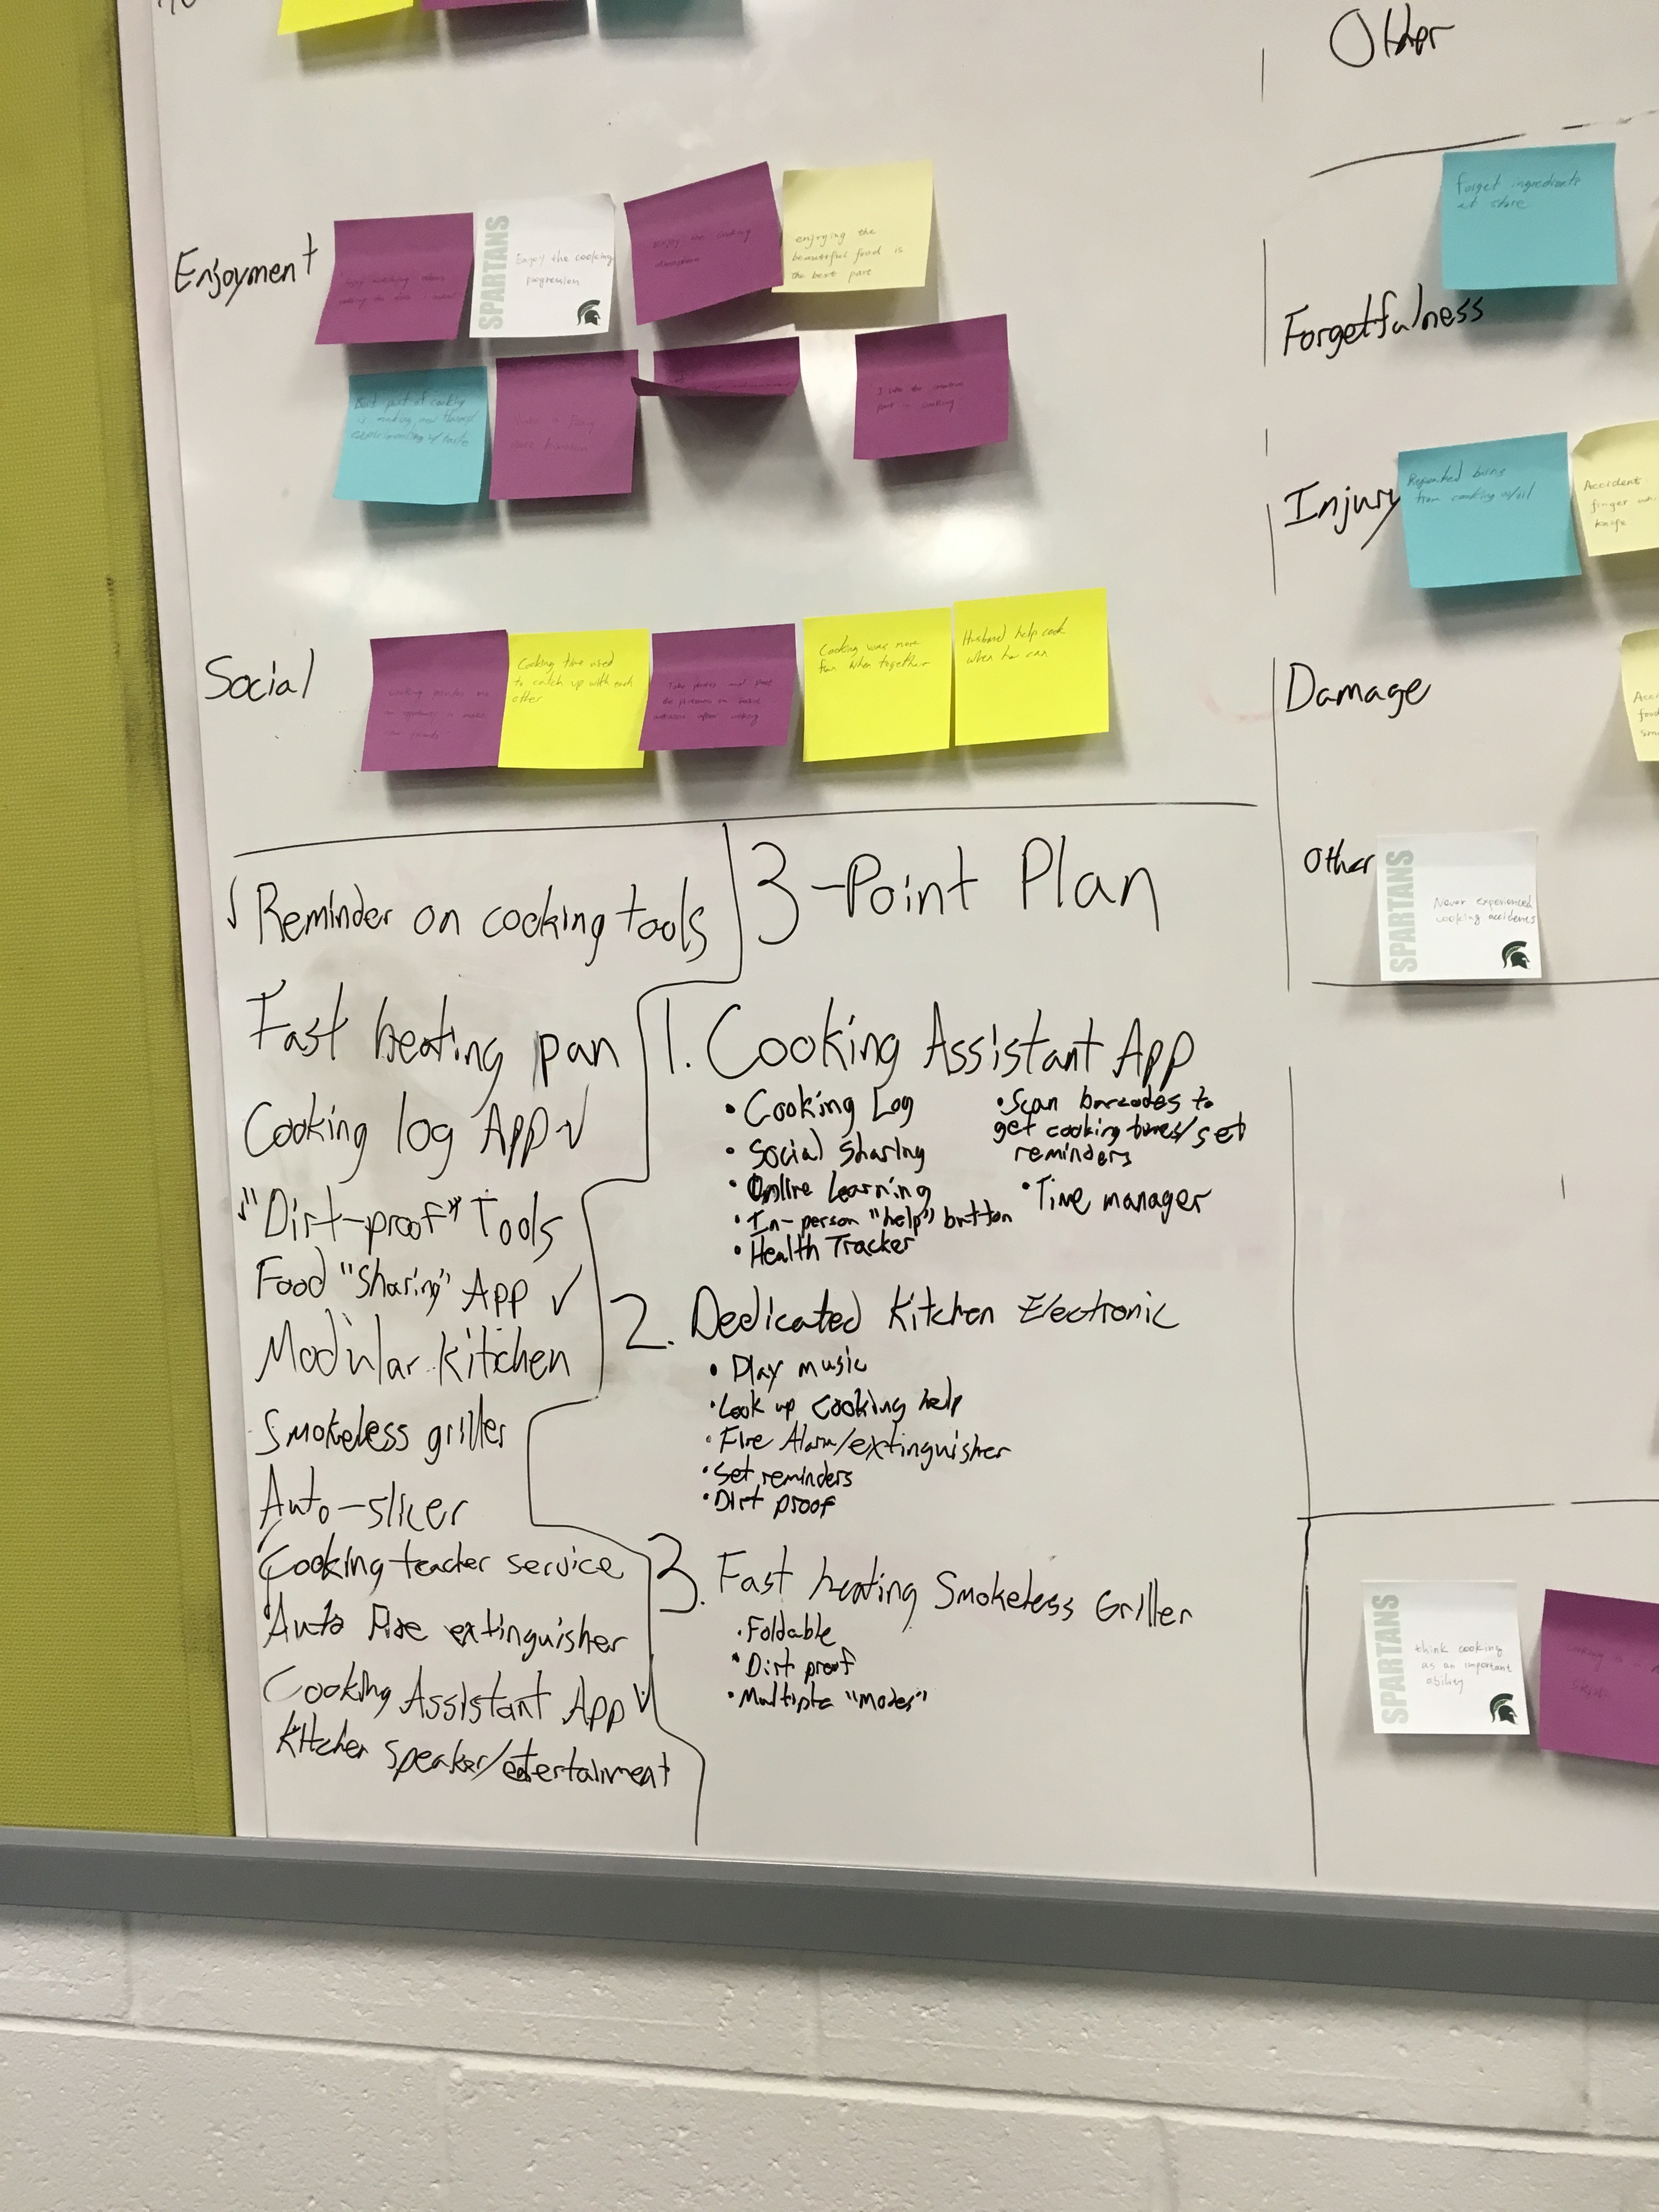 Other
Enjoyment
SPARTANS
Enjoy the cooking
progression
Enjoy the cooking
enjoying the
beautiful food is
the best part
Best part of cooking
is making new flavors/
experimenting w/ taste
I like the creative
part cooking
Social
Cooking time used
to catch up with each
other
Take photos and post
the pictures on social
after cooking
Cooking was more
fun when together
Husband help cook
when he can
forget ingredients
at store
Forgetfulness
Injury
Repeated burns
from cooking w/oil
Accident
finger
knife
Damage
Other
SPARTANS
Never experienced
cooking accidents
Reminder on cooking tools
Fast heating pan
Cooking log App ✓
"Dirt-proof" Tools
Food "Sharing" App ✓
Modular kitchen
Smokeless griller
Auto-slicer
Cooking teacher service
Auto Fire extinguisher
Cooking Assistant App ✓
Kitchen speaker/entertainment
3-Point Plan
1. Cooking Assistant App
• Cooking Log
• Social sharing
• Online Learning
• In-person "help" button
• Health Tracker
• Scan barcodes to
get cooking times/set
reminders
• Time manager
2. Dedicated Kitchen Electronic
• Play music
• Look up cooking help
• Fire Alarm/extinguisher
• Set reminders
• Dirt proof
3. Fast heating Smokeless Griller
• Foldable
• Dirt proof
• Multiple "modes"
SPARTANS
think cooking
as an important
ability